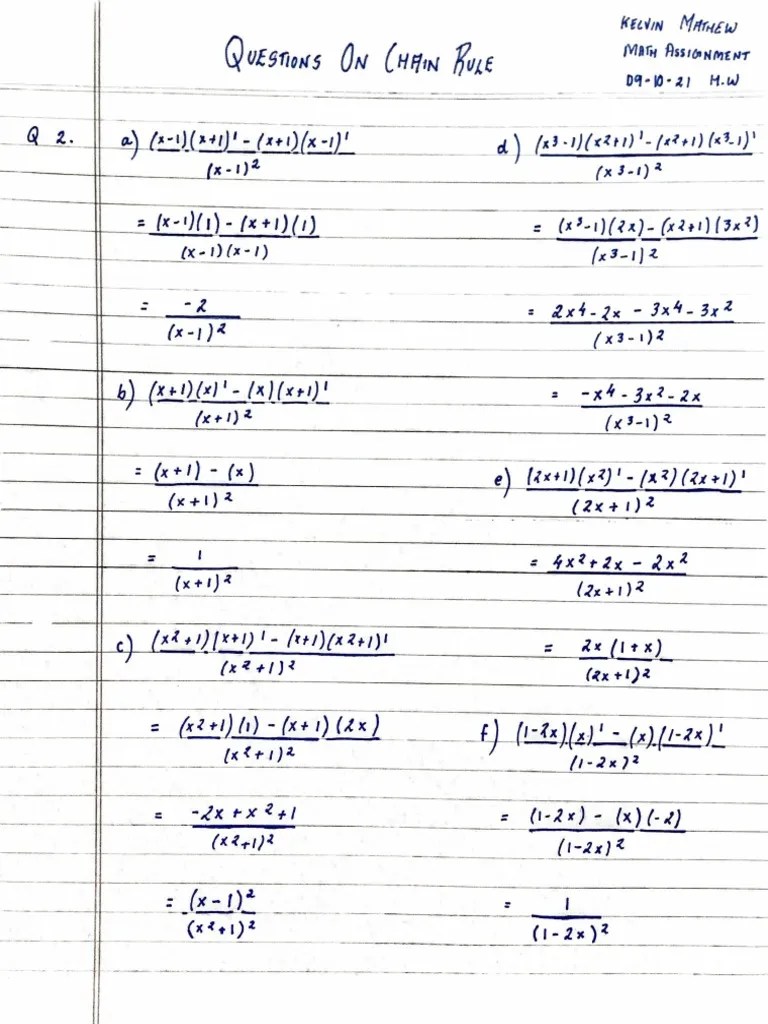 KELVIN MATHEW
MATH ASSIGNMENT
09-10-21 H.W
QUESTIONS ON CHAIN RULE
Q 2.
a) (x-1)(x+1)' - (x+1)(x-1)'
(x-1)2
= (x-1)(1) - (x+1)(1)
(x-1)(x-1)
= -2
(x-1)2
b) (x+1)(x)' - (x)(x+1)'
(x+1)2
= (x+1) - (x)
(x+1)2
= 1
(x+1)2
c) (x2+1)(x+1)' - (x+1)(x2+1)'
(x2+1)2
= (x2+1)(1) - (x+1)(2x)
(x2+1)2
= -2x + x2 + 1
(x2+1)2
= (x-1)2
(x2+1)2
d) (x3-1)(x2+1)' - (x2+1)(x3-1)'
(x3-1)2
= (x3-1)(2x) - (x2+1)(3x2)
(x3-1)2
= 2x4 - 2x - 3x4 - 3x2
(x3-1)2
= -x4 - 3x2 - 2x
(x3-1)2
e) (2x+1)(x2)' - (x2)(2x+1)'
(2x+1)2
= 4x2 + 2x - 2x2
(2x+1)2
= 2x(1+x)
(2x+1)2
f) (1-2x)(x)' - (x)(1-2x)'
(1-2x)2
= (1-2x) - (x)(-2)
(1-2x)2
= 1
(1-2x)2